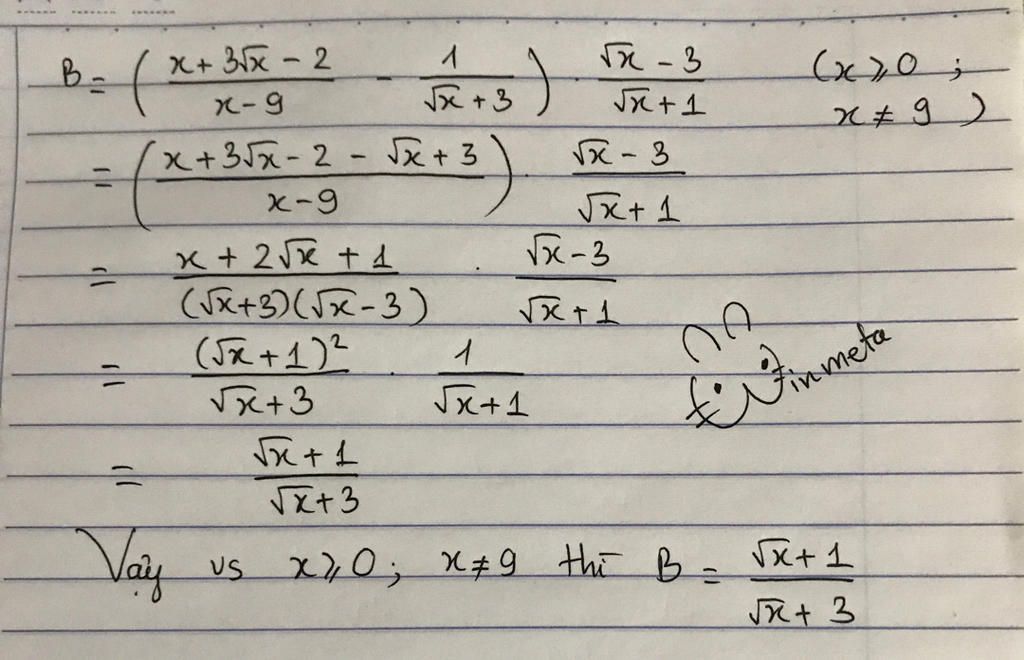 B = ( (x + 3√x - 2)/(x - 9) - 1/(√x + 3) ) · (√x - 3)/(√x + 1) (x ⩾ 0 ; x ≠ 9)
= ( (x + 3√x - 2 - √x + 3)/(x - 9) ) · (√x - 3)/(√x + 1)
= (x + 2√x + 1)/((√x + 3)(√x - 3)) · (√x - 3)/(√x + 1)
= (√x + 1)²/(√x + 3) · 1/(√x + 1)
inmeta
= (√x + 1)/(√x + 3)
Vậy vs x ⩾ 0; x ≠ 9 thì B = (√x + 1)/(√x + 3)